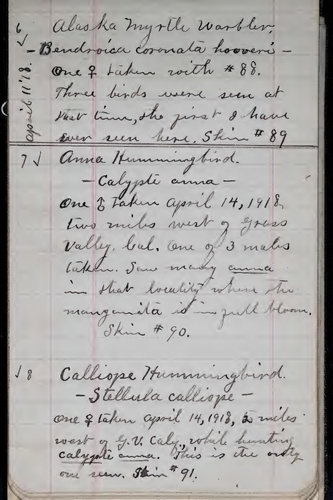 6 Alaska Myrtle Warbler,
✓ - Dendroica coronata hooveri -
april 11 '18.
One ♀ taken with # 88.
Three birds were seen at
that time, the first I have
ever seen here. Skin # 89
7 ✓ Anna Hummingbird.
- Calypte anna -
One ♂ taken April 14, 1918,
two miles west of Grass
Valley, Cal. One of 3 males
taken. Saw many anna
in that locality where the
manzanita is in full bloom.
Skin # 90.
✓ 8 Calliope Hummingbird.
- Stellula calliope -
One ♀ taken april 14, 1918, 2 miles
west of G.V. Caly, while hunting
calypte anna. This is the only
one seen. Skin # 91.